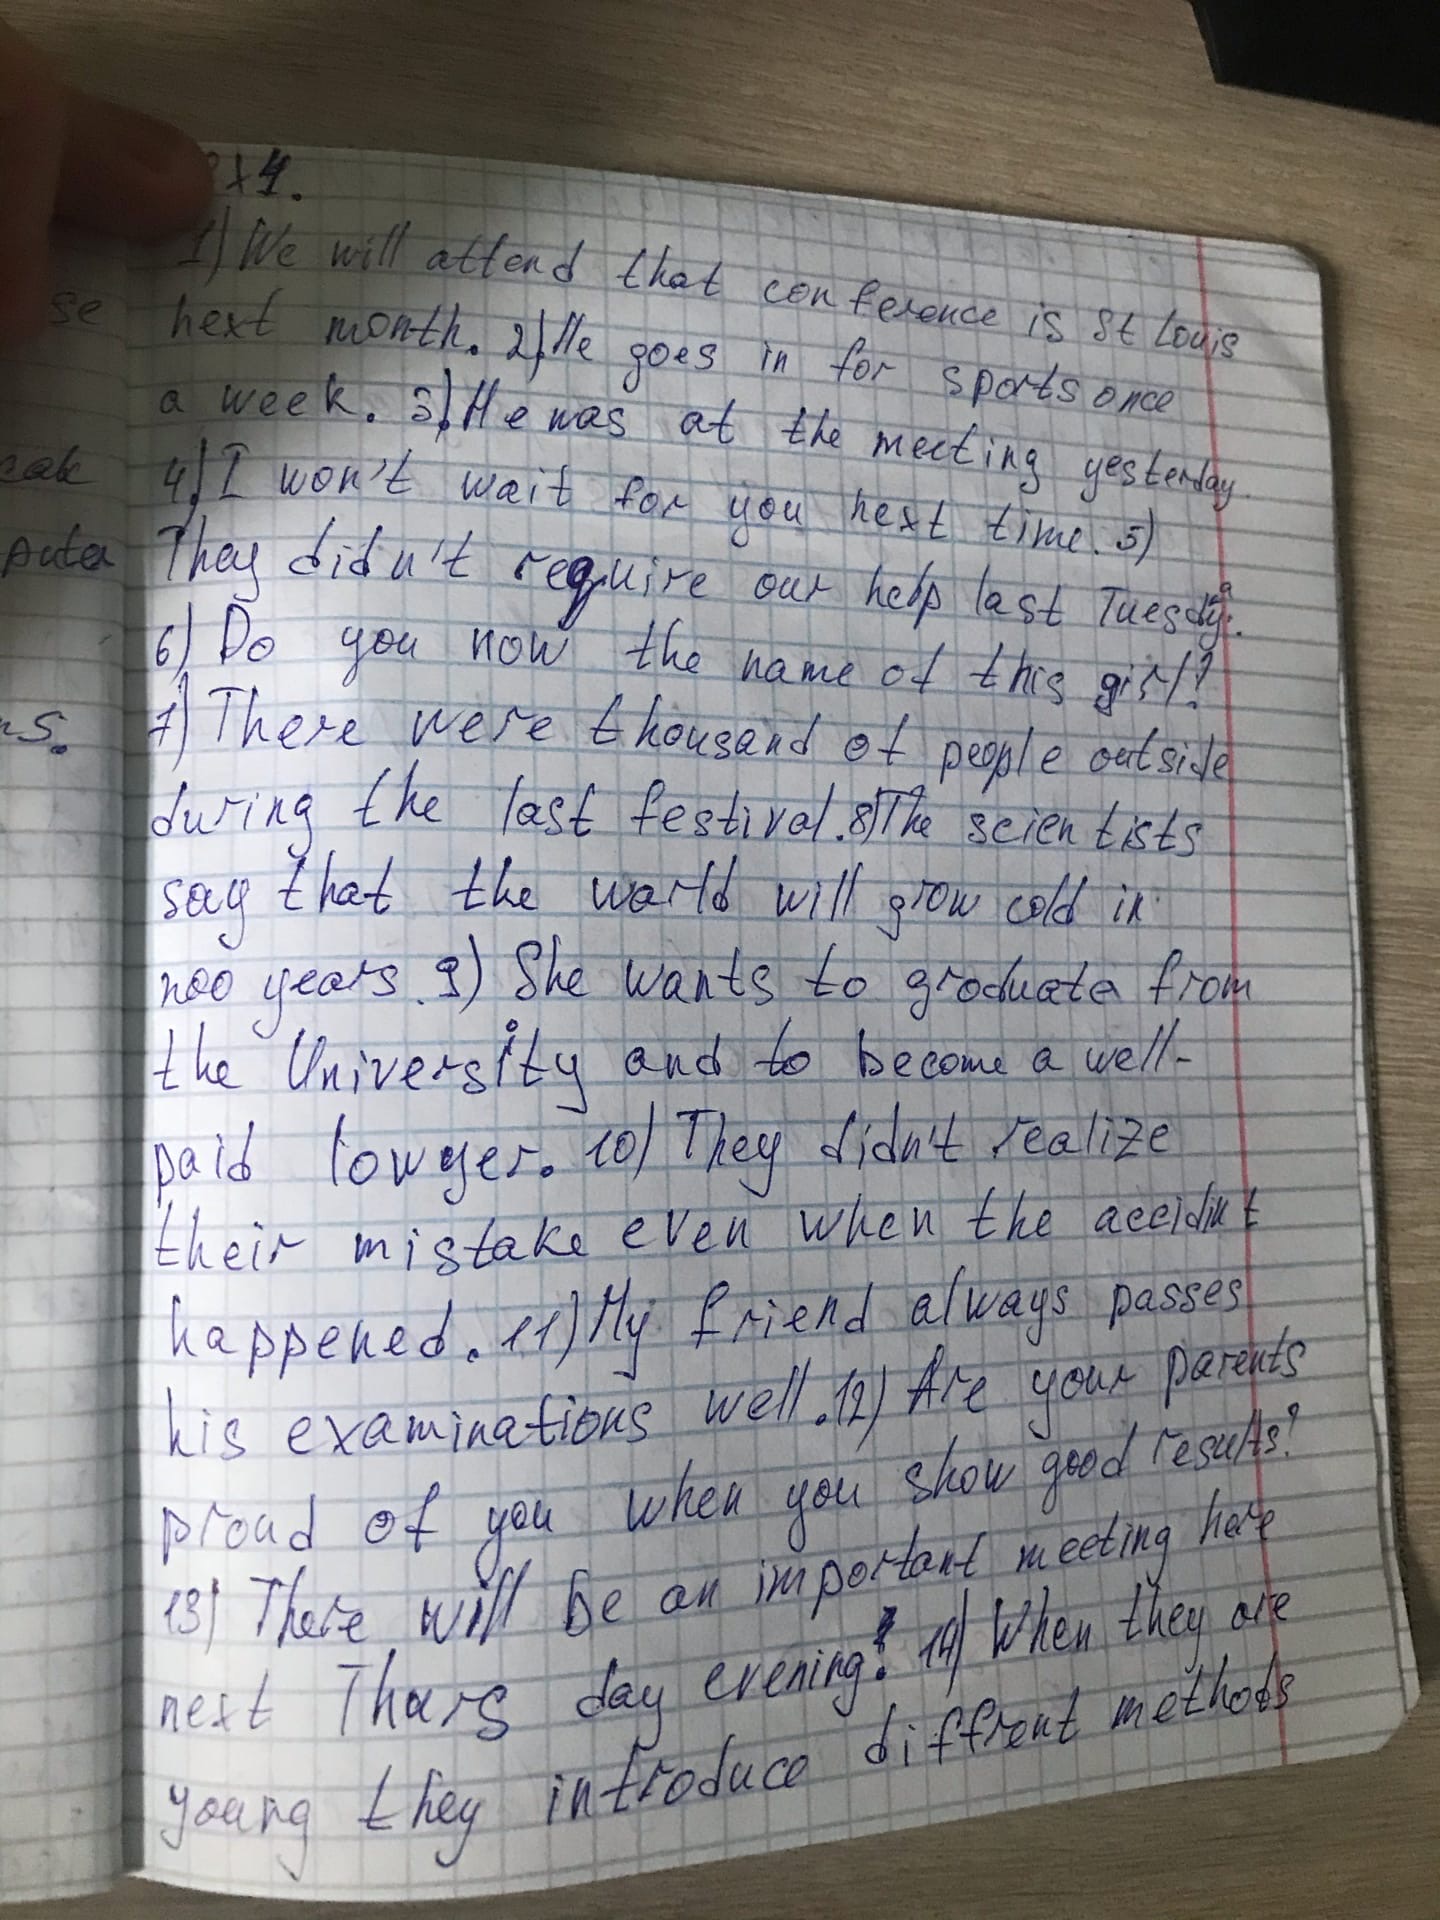 ex4.
1) We will attend that conference is St Louis
next month. 2) He goes in for sports once
a week. 3) He was at the meeting yesterday.
4) I won't wait for you next time. 5)
They didn't require our help last Tuesday.
6) Do you now the name of this girl?
7) There were thousand of people outside
during the last festival. 8) The scientists
say that the world will grow cold in
200 years. 9) She wants to graduate from
the University and to become a well-
paid lowyer. 10) They didn't realize
their mistake even when the accidint
happened. 11) My friend always passes
his examinations well. 12) Are your parents
proud of you when you show good results?
13) There will be an important meeting here
next Thurs day evening. 14) When they are
young they introduce diffrent methods
se
eak
puter
ns.